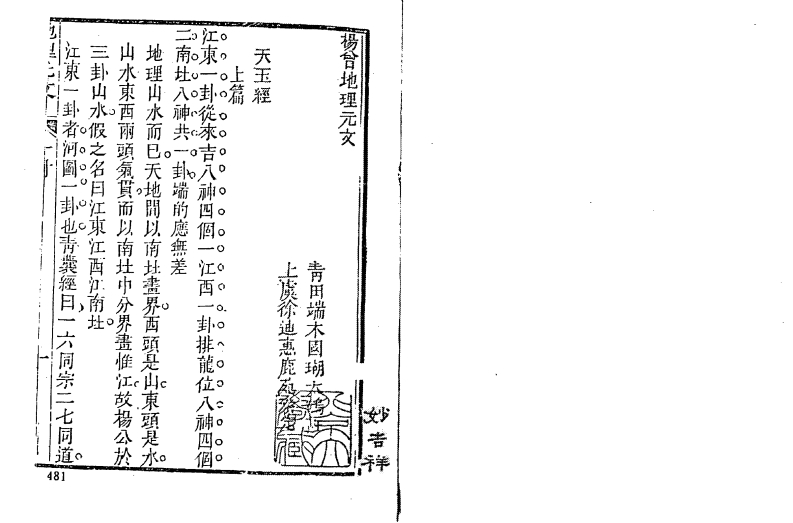 楊曾地理元文
青田端木國瑚
上虞徐迪惠鹿苑
天玉經
上篇
江東一卦從來吉八神四個一江西一卦排龍位八神四個
二南北八神共一卦端的應無差
地理山水而已天地間以南北畫界西頭是山東頭是水
山水東西兩頭氣貫而以南北中分界畫惟江故楊公於
三卦山水假之名曰江東江西江南北
江東一卦者河圖一卦也青囊經曰一六同宗二七同道
妙吉祥
481